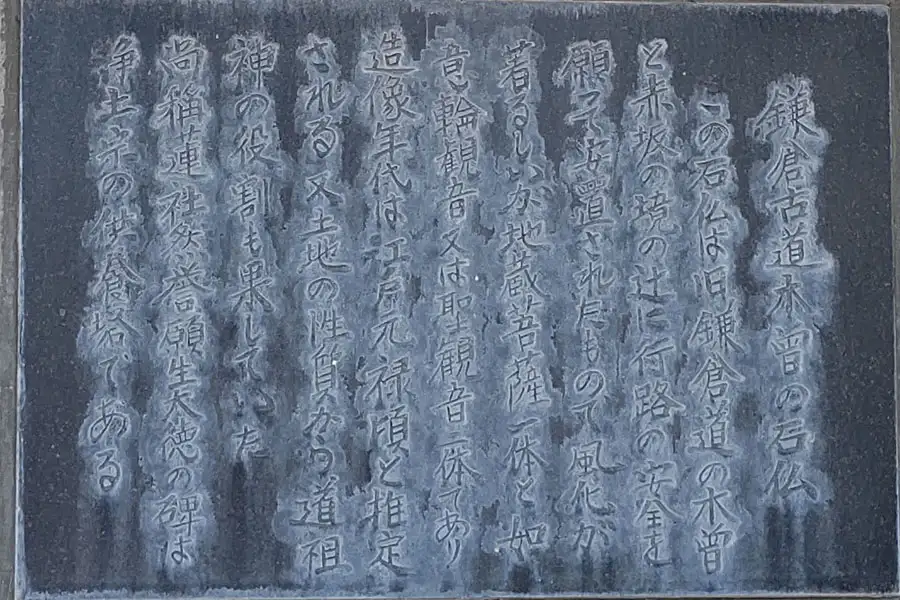 鎌倉古道木曽の石仏
この石仏は旧鎌倉道の木曽
と赤坂の境の辻に行路の安全を
願って安置されたもので風化が
著るしいが地蔵菩薩一体と如
意輪観音又は聖観音一体であり
造像年代は江戸元禄頃と推定
される又土地の性質から道祖
神の役割も果していた
尚称蓮社念誉願生大徳の碑は
浄土宗の供養塔である